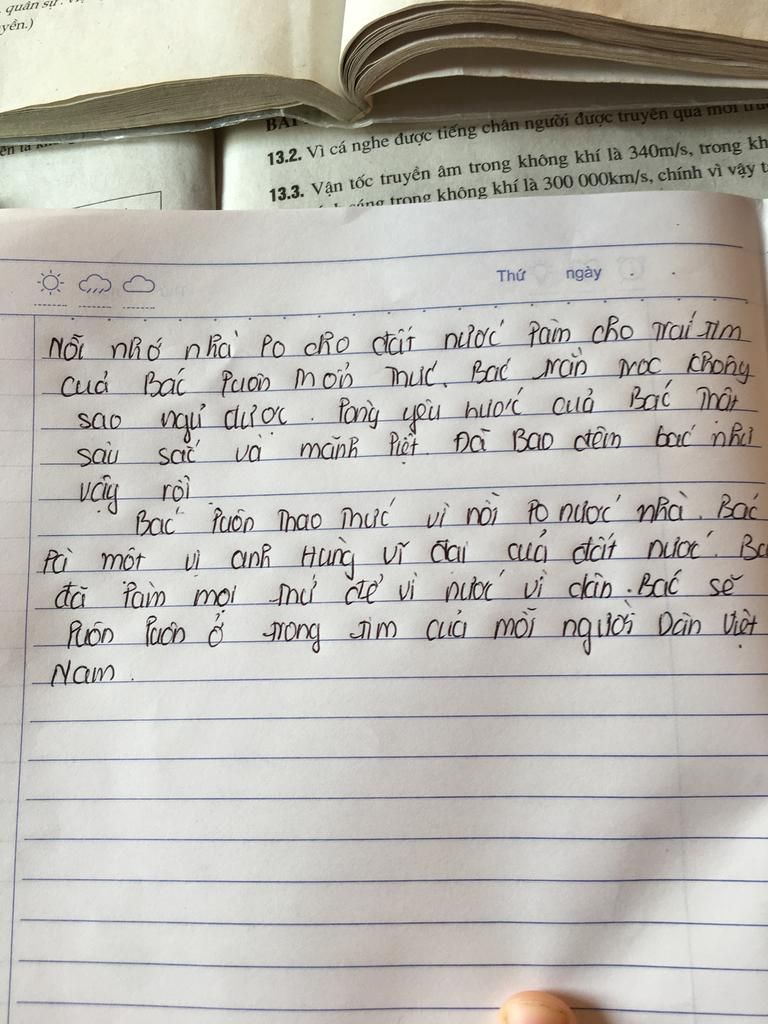 quân sự
yền.)
13.2. Vì cá nghe được tiếng chân người được truyền qua môi
13.3. Vận tốc truyền âm trong không khí là 340m/s, trong kh
sáng trong không khí là 300 000km/s, chính vì vậy t
Thứ ngày
Nỗi nhớ nhà lo cho đất nước làm cho trái tim
cuả Bác luôn thổn thức. Bác trằn trọc không
sao ngủ được. Lòng yêu nước cuả Bác thật
sâu sắc và mãnh liệt. Đã Bao đêm bác như
vậy rồi
Bác luôn thao thức vì nỗi lo nước nhà. Bác
là một vị anh Hùng vĩ đại cuả đất nước. Bá
đã làm mọi thứ để vì nước vì dân. Bác sẽ
luôn luôn ở trong tim cuả mỗi người Dân Việt
Nam.